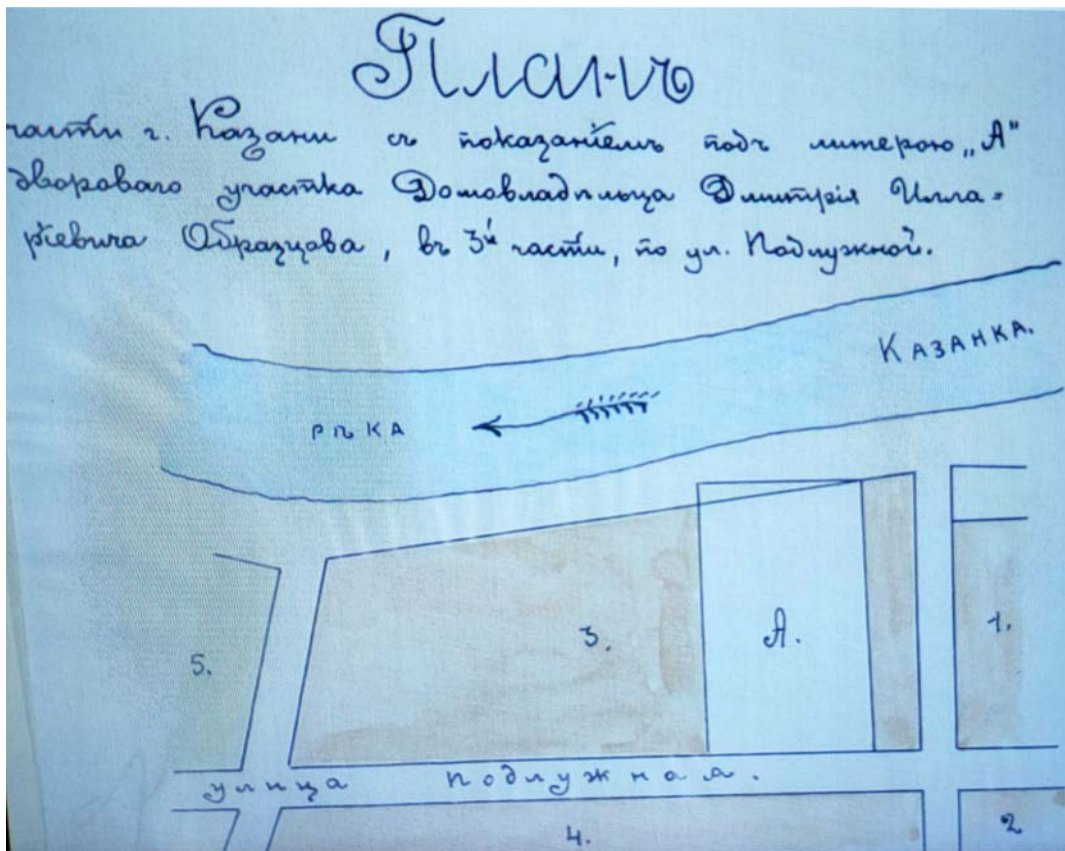 Планъ
части г. Казани съ показаніемъ подъ литерою „А"
двороваго участка Домовладѣльца Дмитрія Илла=
ріевича Образцова, въ 3й части, по ул. Подлужной.
КАЗАНКА.
РѢКА
3.
А.
1.
5.
улица Подлужная.
4.
2